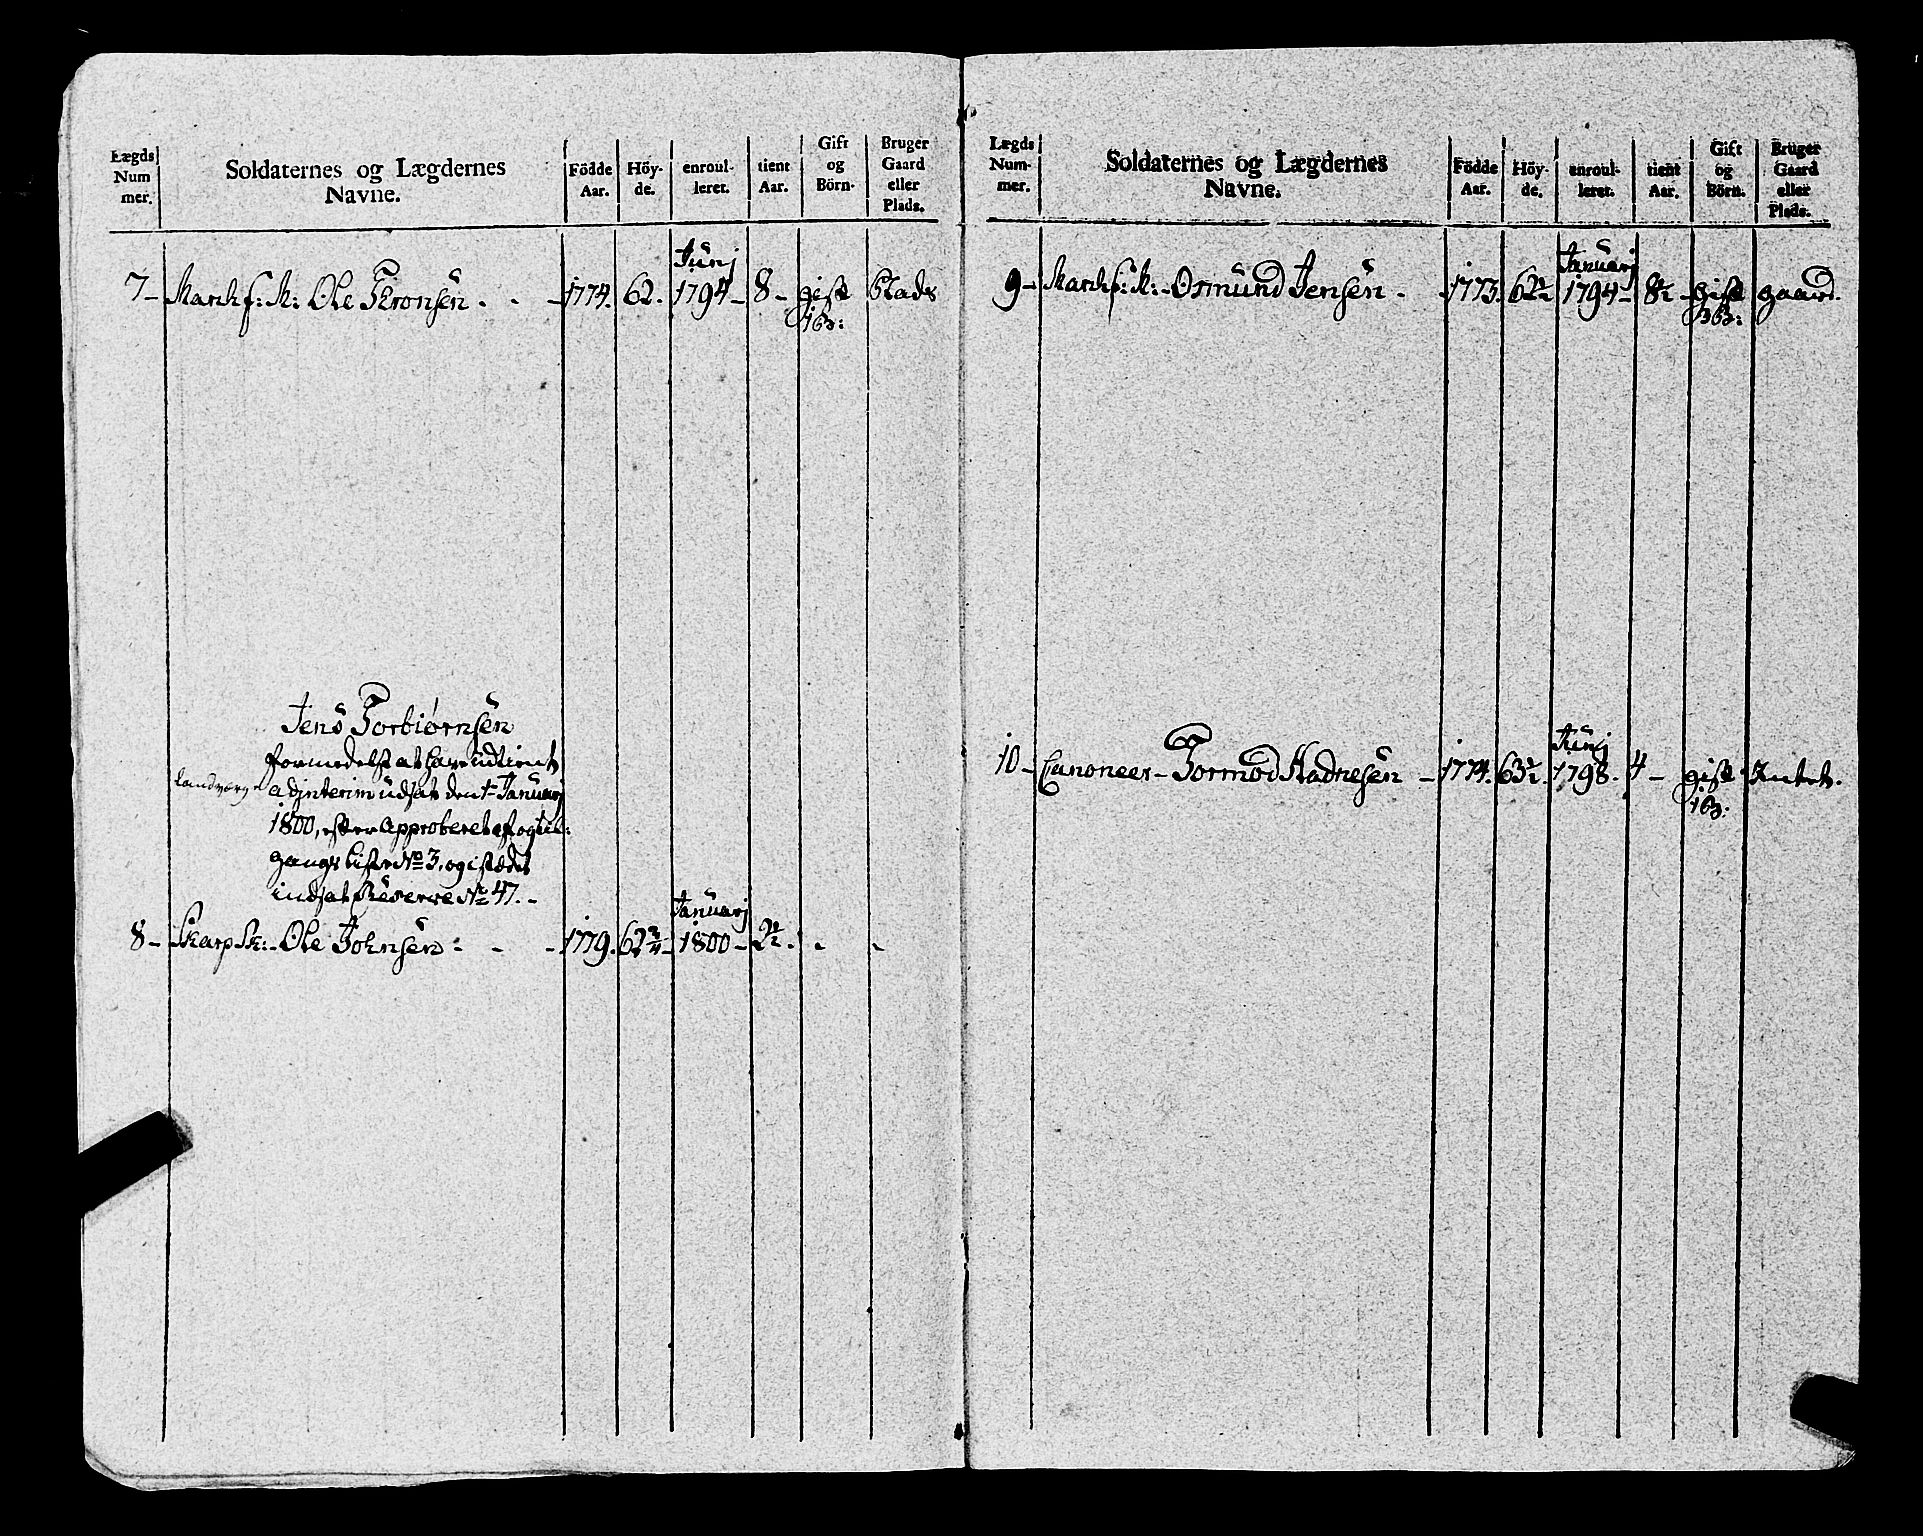 Lægds
Num
mer.
Soldaternes og Lægdernes
Navne.
Födde
Aar.
Höy-
de.
enroul-
leret.
tient
Aar.
Gift
og
Börn.
Bruger
Gaard
eller
Plads.
Junj
7 - Ole Tronsen - - 1774. 62. 1794 - 8 - gift Plads
1 b:
Jens Torbiørnsen
formedelst at have udtient
Landværge adjnterim udsat den 1te Januarj
1800, efter Approberet af og til-
gangs Liste No 3, og istædet
indsat Reserve No 47. -
Januarj
8 - Skarp Sk: - Ole Johnsen - - - 1779. 62 3/4 - 1800 - 2 1/2 - - -
Lægds
Num-
mer.
Soldaternes og Lægdernes
Navne.
Födde
Aar.
Höy-
de.
enroul-
leret.
tient
Aar.
Gift
og
Börn.
Bruger
Gaard
eller
Plads.
Januarj
9 - Osmund Jensen - 1773. 62 1/2 1794 - 8 1/2 - gift gaard.
3 b:
Junj
10 - Canoneer - Tormod Hadnesen - 1774. 63 1/2. 1798. 4 - gift Intet.
1 b: